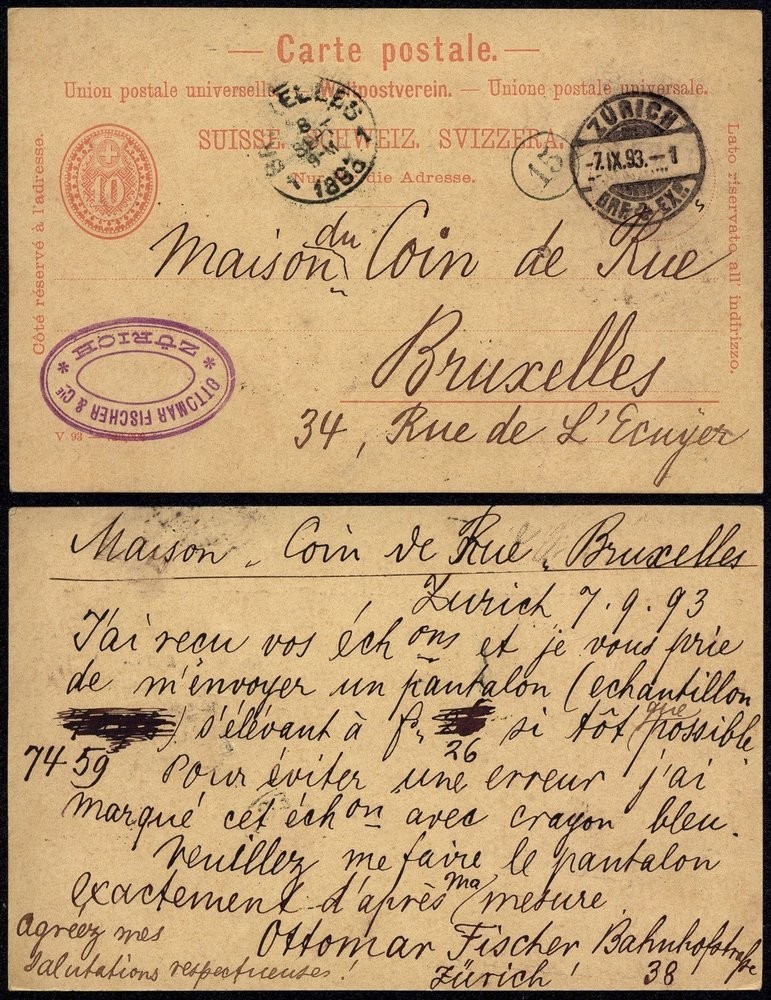 — Carte postale. —
Union postale universelle. — Weltpostverein. — Unione postale universale.
SUISSE. SCHWEIZ. SVIZZERA.
Nur für die Adresse.
Côté réservé à l'adresse.
Lato riservato all' indirizzo.
10
BRUXELLES 1
8
1893
15
ZÜRICH
-7.IX.93.—1
BRF. & EXP.
s
du
Maison Coin de Rue
Bruxelles
34, Rue de L'Ecuyer
* OTTOMAR FISCHER & CIE *
ZÜRICH
V 93
Maison „ Coin de Rue „ Bruxelles
Zurich 7.9.93
J'ai recu vos échons et je vous prie
de m'envoyer un pantalon (echantillon
) s'élevant à f. 26 si tôt que possible.
7459 Pour éviter une erreur j'ai
marqué cet échon avec crayon bleu.
Veuillez me faire le pantalon
exactement d'après ma mesure
Agréez mes
salutations respectueuses!
Ottomar Fischer Bahnhofstraße
Zürich! 38